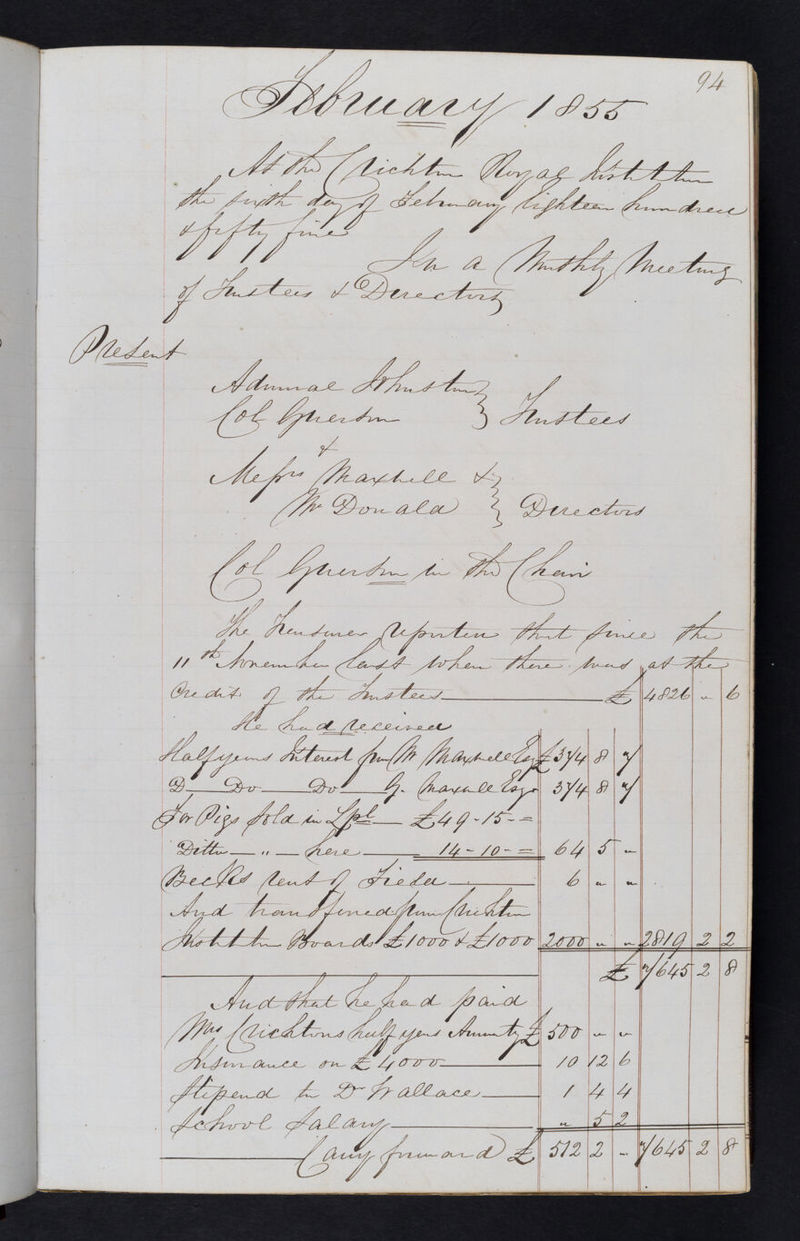 94
February 1855
At the Crichton Royal Institution
the sixth day of February Eighteen hundred
& fifty five
In a Monthly Meeting
of Trustees & Directors
Present
Admiral Johnston
Col Grierson } Trustees
&
Messrs Maxwell &
McDonald } Directors
Col Grierson in the Chair
The Treasurer reported that since the
11th November last when there was at the
Credit of the Trustees £ 4826 " 6
He had received
Half years Interest from W Maxwell Esqr £ 374 8 7
D Do Do G. Maxwell Esqr 374 8 7
For Pigs sold in Lpl £49-15-=
Ditto " here 14-10-= 64 5 "
Becks rent of Field 6 " "
And transferred from Crichton
Institution Boards £1000 & £1000 2000 " " 2819 2 2
£ 7645 2 8
And that he had paid
Mrs Crichtons half years Annuity £ 500 " "
Insurance on £4000 10 12 6
Stipend to Dr Wallace 1 4 4
School Salary " 5 2
Carry forward £ 512 2 " 7645 2 8